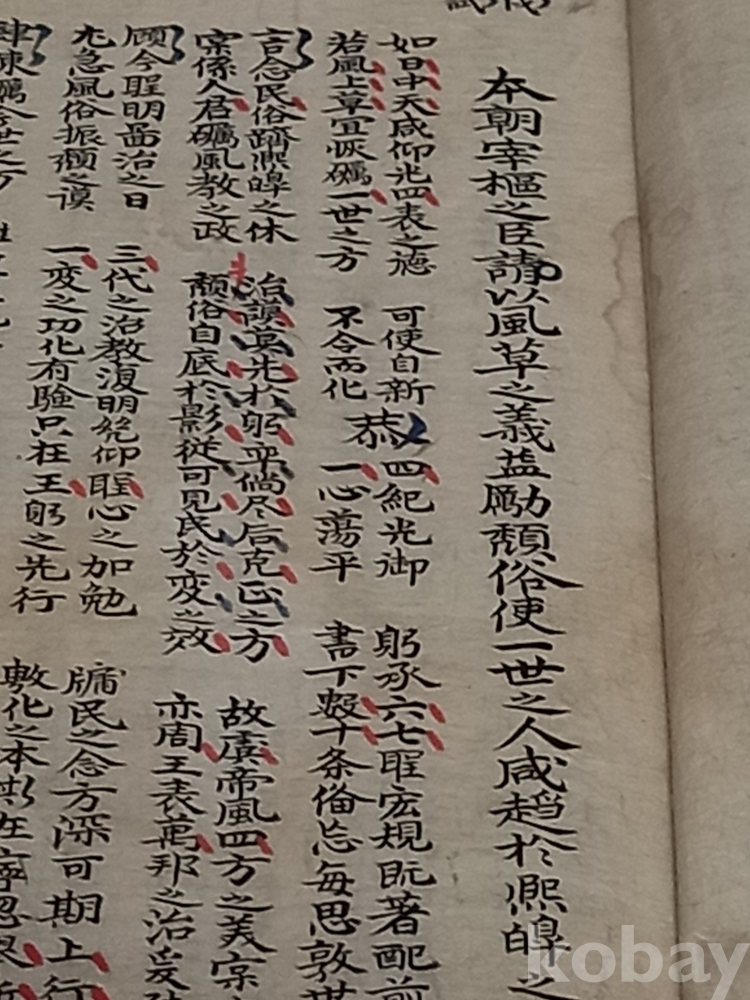 本朝宰樞之臣請以風草之義益勵頹俗使一世之人咸趍於熙皥之
如日中天咸仰光四表之德 可使自新 恭 四紀光御 躬承六七聖宏規旣著配前
若風上草宜恢礪一世之方 不令而化 一心蕩平 書下數十条俻忘每思敦世
言念民俗躋熙皥之休 治謨莫先於躬率倘尽后克正之方 故虞帝風四方之美宲
宲係人君礪風教之政 頹俗自底於影從可見民於變之效 亦周王表萬邦之治爰
顧今聖明啚治之日 三代之治教復明総仰聖心之加勉 牖民之念方深可期上行
尤急風俗振頹之謨 一変之功化有驗只在王躬之先行 敷化之本斯在寧忍